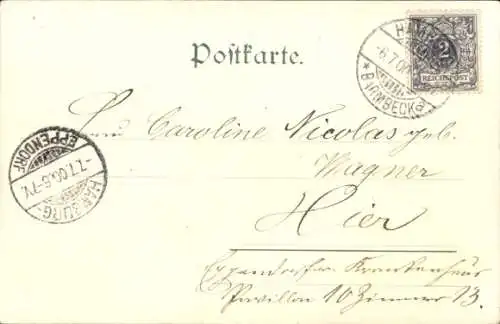 Postkarte.
HAMBURG
2
REICHSPOST
6.7.00
* BARMBECK *
Frau Caroline Nicolas geb.
Wagner
Hier
Eppendorfer Krankenhaus
Pavillon 10 Zimmer 13.
HAMBURG-
7.7.00.6-7V.
EPPENDORF